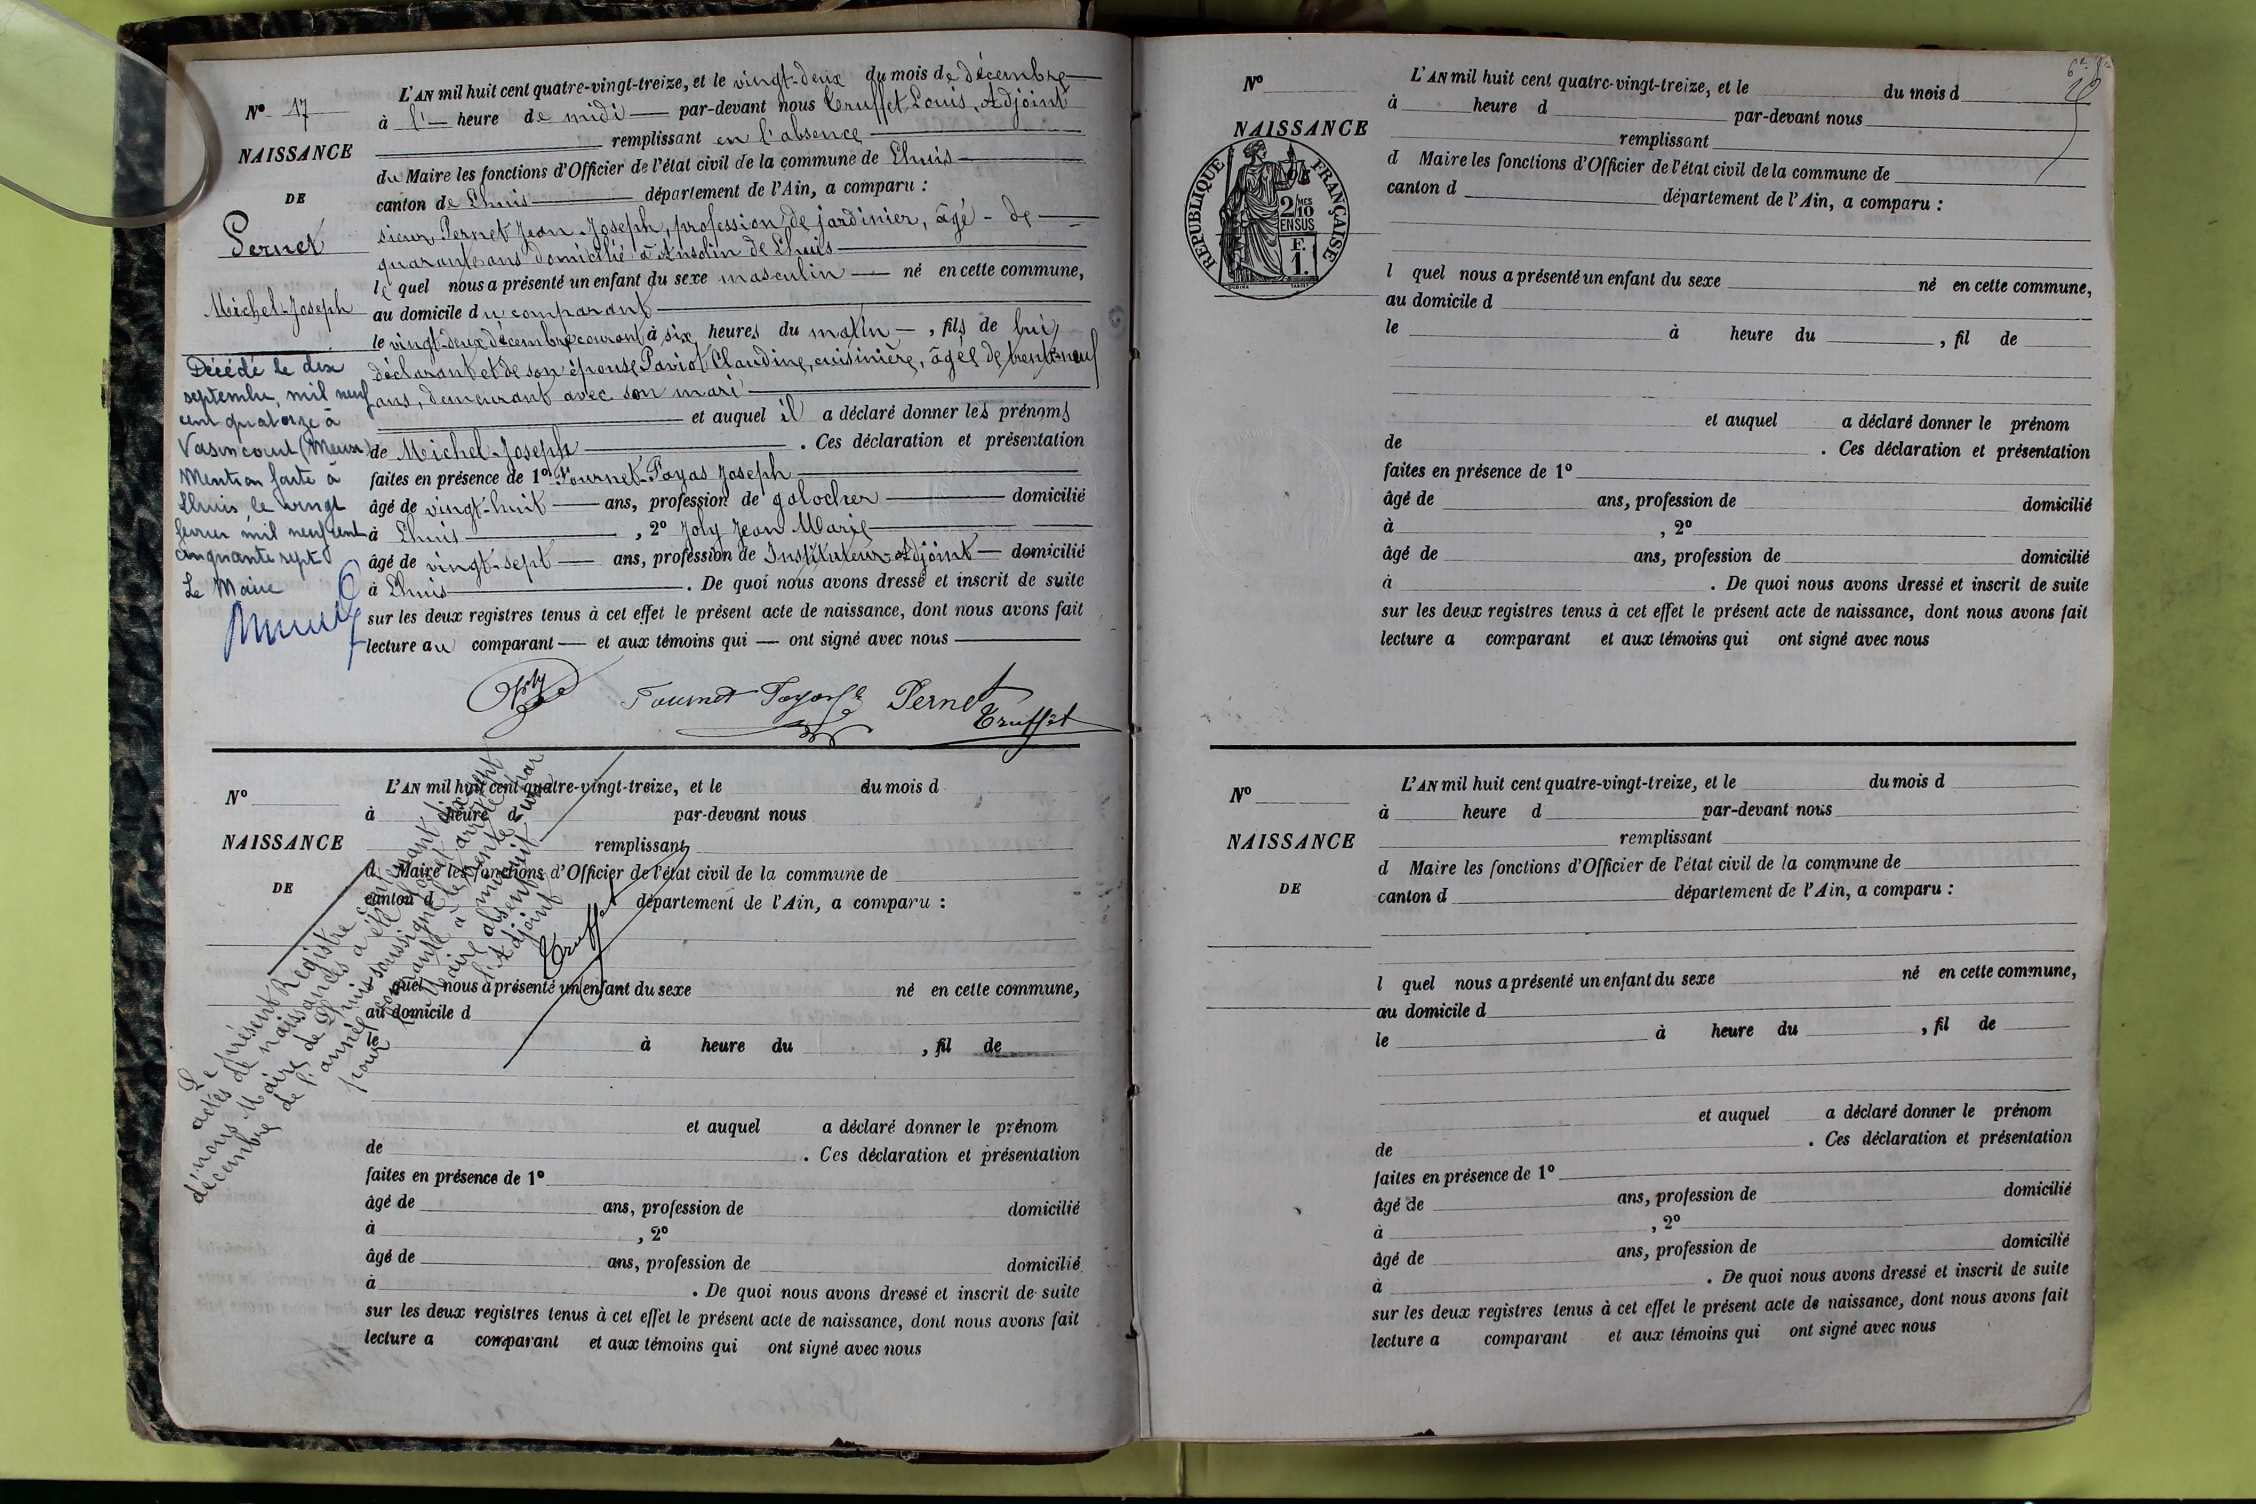 N° 17
NAISSANCE
DE
Pernet
Michel-Joseph
Décédé le dix
septembre, mil neuf
cent quatorze à
Vasincourt (Meuse)
Mention faite à
Lhuis le vingt
février mil neuf cent
cinquante sept
Le Maire
L'AN mil huit cent quatre-vingt-treize, et le vingt-deux du mois de décembre
à l' heure de midi par-devant nous Truffet Louis, Adjoint
remplissant en l'absence
du Maire les fonctions d'Officier de l'état civil de la commune de Lhuis
canton de Lhuis département de l'Ain, a comparu :
sieur Pernet Jean-Joseph, profession de jardinier, âgé de
quarante ans domicilié à Ansolin de Lhuis
lequel nous a présenté un enfant du sexe masculin né en cette commune,
au domicile du comparant
le vingt-deux décembre courant à six heures du matin, fils de lui,
déclarant et de son épouse Paviot Claudine, cuisinière, âgée de trente-neuf
ans, demeurant avec son mari
et auquel il a déclaré donner les prénoms
de Michel-Joseph. Ces déclaration et présentation
faites en présence de 1° Fournet-Fayas Joseph
âgé de vingt-huit ans, profession de galocher domicilié
à Lhuis, 2° Joly Jean Marie
âgé de vingt-sept ans, profession de Instituteur-Adjoint domicilié
à Lhuis. De quoi nous avons dressé et inscrit de suite
sur les deux registres tenus à cet effet le présent acte de naissance, dont nous avons fait
lecture au comparant et aux témoins qui ont signé avec nous
Joly Fournet Fayas Pernet
Truffet
N°
NAISSANCE
DE
L'AN mil huit cent quatre-vingt-treize, et le du mois d
à heure d par-devant nous
remplissant
d Maire les fonctions d'Officier de l'état civil de la commune de
canton d département de l'Ain, a comparu :
quel nous a présenté un enfant du sexe né en cette commune,
au domicile d
le à heure du , fil de
et auquel a déclaré donner le prénom
de . Ces déclaration et présentation
faites en présence de 1°
âgé de ans, profession de domicilié
à , 2°
âgé de ans, profession de domicilié
à . De quoi nous avons dressé et inscrit de suite
sur les deux registres tenus à cet effet le présent acte de naissance, dont nous avons fait
lecture a comparant et aux témoins qui ont signé avec nous
Le présent Registre contenant dix-sept
actes de naissances a été clos et arrêté par
nous Maire de Lhuis soussigné le trente-un
décembre de l'année courante à minuit
pour le Maire absent
l'Adjoint
Truffet
N°
NAISSANCE
REPUBLIQUE FRANÇAISE
2/10 MES
EN SUS
F.
1.
L'AN mil huit cent quatre-vingt-treize, et le du mois d
à heure d par-devant nous
remplissant
d Maire les fonctions d'Officier de l'état civil de la commune de
canton d département de l'Ain, a comparu :
l quel nous a présenté un enfant du sexe né en cette commune,
au domicile d
le à heure du , fil de
et auquel a déclaré donner le prénom
de . Ces déclaration et présentation
faites en présence de 1°
âgé de ans, profession de domicilié
à , 2°
âgé de ans, profession de domicilié
à . De quoi nous avons dressé et inscrit de suite
sur les deux registres tenus à cet effet le présent acte de naissance, dont nous avons fait
lecture a comparant et aux témoins qui ont signé avec nous
N°
NAISSANCE
DE
L'AN mil huit cent quatre-vingt-treize, et le du mois d
à heure d par-devant nous
remplissant
d Maire les fonctions d'Officier de l'état civil de la commune de
canton d département de l'Ain, a comparu :
l quel nous a présenté un enfant du sexe né en cette commune,
au domicile d
le à heure du , fil de
et auquel a déclaré donner le prénom
de . Ces déclaration et présentation
faites en présence de 1°
âgé de ans, profession de domicilié
à , 2°
âgé de ans, profession de domicilié
à . De quoi nous avons dressé et inscrit de suite
sur les deux registres tenus à cet effet le présent acte de naissance, dont nous avons fait
lecture a comparant et aux témoins qui ont signé avec nous